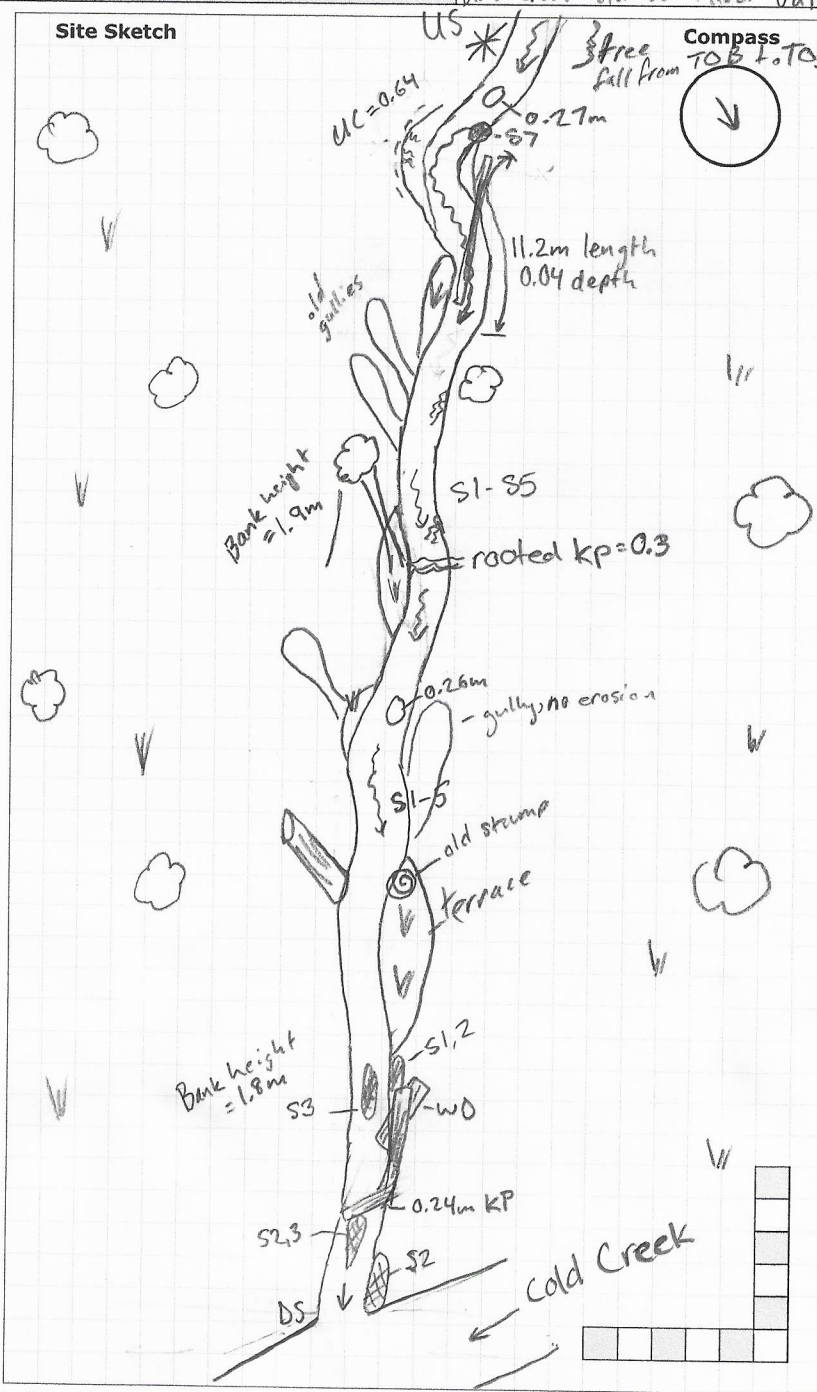 Site Sketch
US
Compass
tree
fall from TOB to TO
UC=0.64
0.27m
S7
11.2m length
0.04 depth
old
gullies
S1-S5
Bank height
=1.9m
rooted kp=0.3
0.26m
gully, no erosion
S1-5
old stump
terrace
S1,2
Bank height
=1.8m
S3
WD
0.24m KP
S2,3
S2
Cold Creek
DS